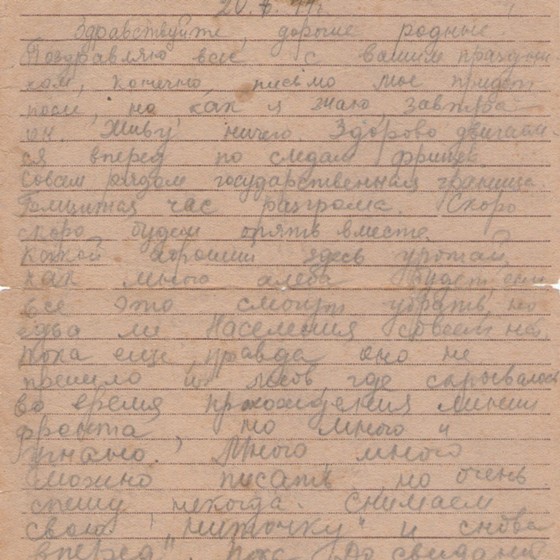 Здравствуйте, дорогие родные!
Поздравляю всех с вашим праздни
ком, конечно письмо мое придет
после, но как я знаю завтра
он. Живу ничего. Здорово двигаем
ся вперед по следам фрицев.
Совсем рядом государственная граница.
час разгрома. Скоро
скоро будем опять вместе.
Какой хороший здесь урожай,
как много хлеба будет если
все это смогут убрать, но
едва ли. Населения совсем нет
пока еще, правда оно не
пришло из лесов, где скрывалось
во время прохождения линии
фронта, но много и
угнано. Много много
можно писать, но очень
спешу некогда. Снимаем
свою "ниточку" и снова
вперед". Пока. До свидания